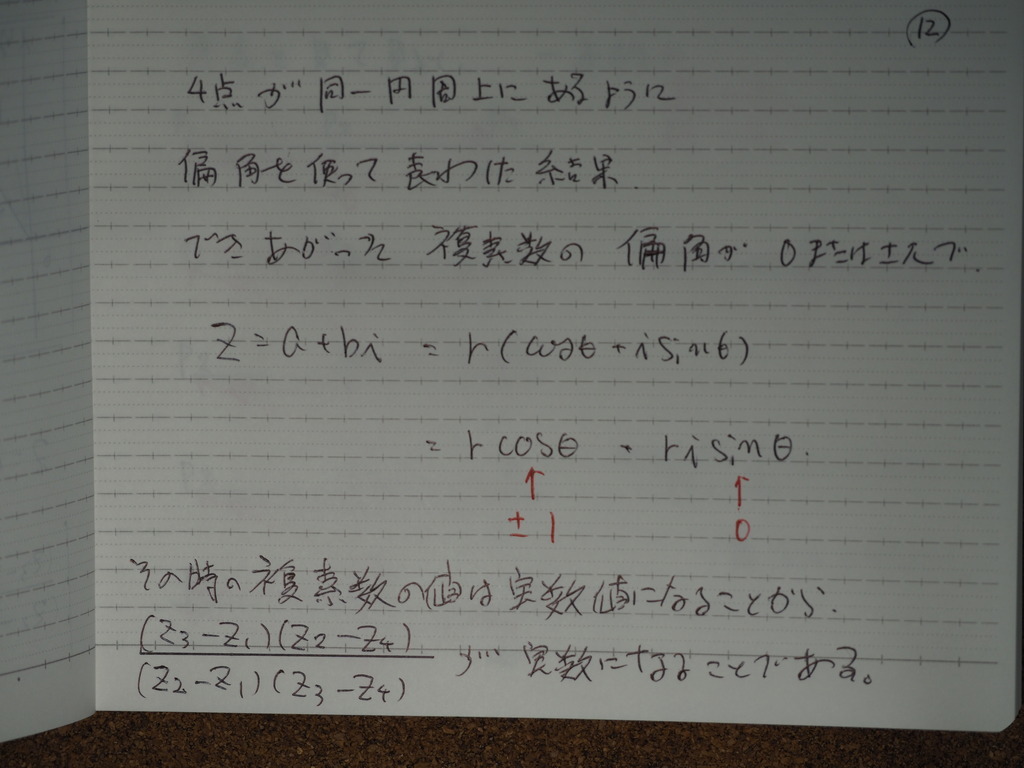 ⑫
4点が同一円周上にあるように
偏角を使って表わした結果.
できあがった 複素数の 偏角が 0または±πで.
Z = a + bi = r (cosθ + i sinθ)
= r cosθ + r i sinθ.
↑ ↑
± 1 0
その時の複素数の値は実数値になることから.
(Z3-Z1)(Z2-Z4)
が 実数になることである。
(Z2-Z1)(Z3-Z4)